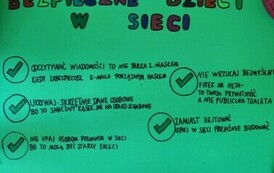 BEZPIECZNE DZIECI
W SIECI
ODCZYTYWAĆ WIADOMOŚCI TO NIE
KIEDY ZABEZPIECZYSZ E-MAILA PORZĄDNYM HASŁEM
UKRYWAJ SKRZĘTNIE DANE OSOBOWE
BO TO SMACZNY KĄSEK
NIE UFAJ OSOBOM POZNANYM W SIECI
BO TO MOGĄ BYĆ STARZY
NIE WRZUCAJ BEZMYŚLNIE
FOTEK NA
TO TWOJA PRYWATNOŚĆ
A NIE PUBLICZNA TOALETA
ZAMIAST HEJTOWAĆ
W SIECI BUDOWAĆ